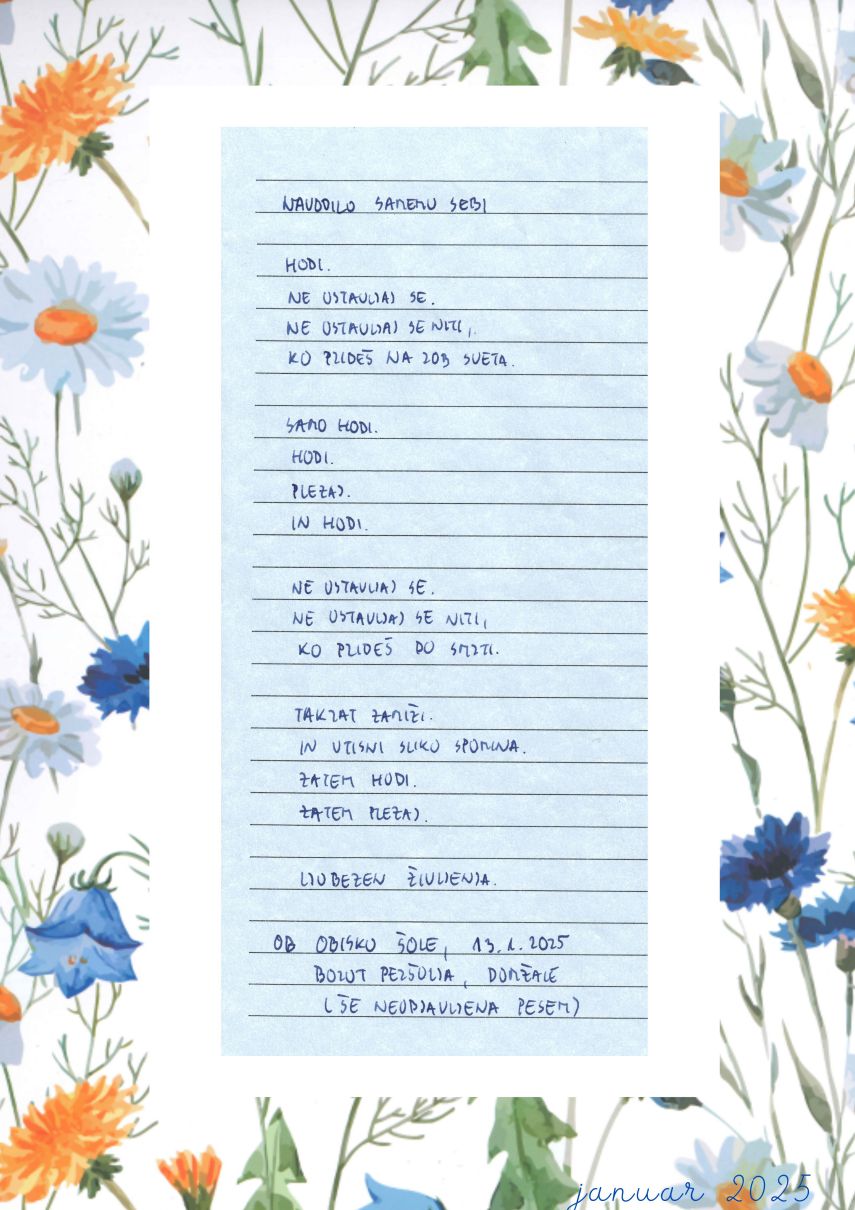 NAVODILO SAMEMU SEBI
HODI.
NE USTAVLJAJ SE.
NE USTAVLJAJ SE NITI,
KO PRIDEŠ NA ROB SVETA.
SAMO HODI.
HODI.
PLEZAJ.
IN HODI.
NE USTAVLJAJ SE.
NE USTAVLJAJ SE NITI,
KO PRIDEŠ DO SMRTI.
TAKRAT ZAMIŽI.
IN VTISNI SLIKO SPOMINA.
ZATEM HODI.
ZATEM PLEZAJ.
LJUBEZEN ŽIVLJENJA.
OB OBISKU ŠOLE, 13.1.2025
BORUT PERŠOLJA, DOMŽALE
(ŠE NEOBJAVLJENA PESEM)
januar 2025